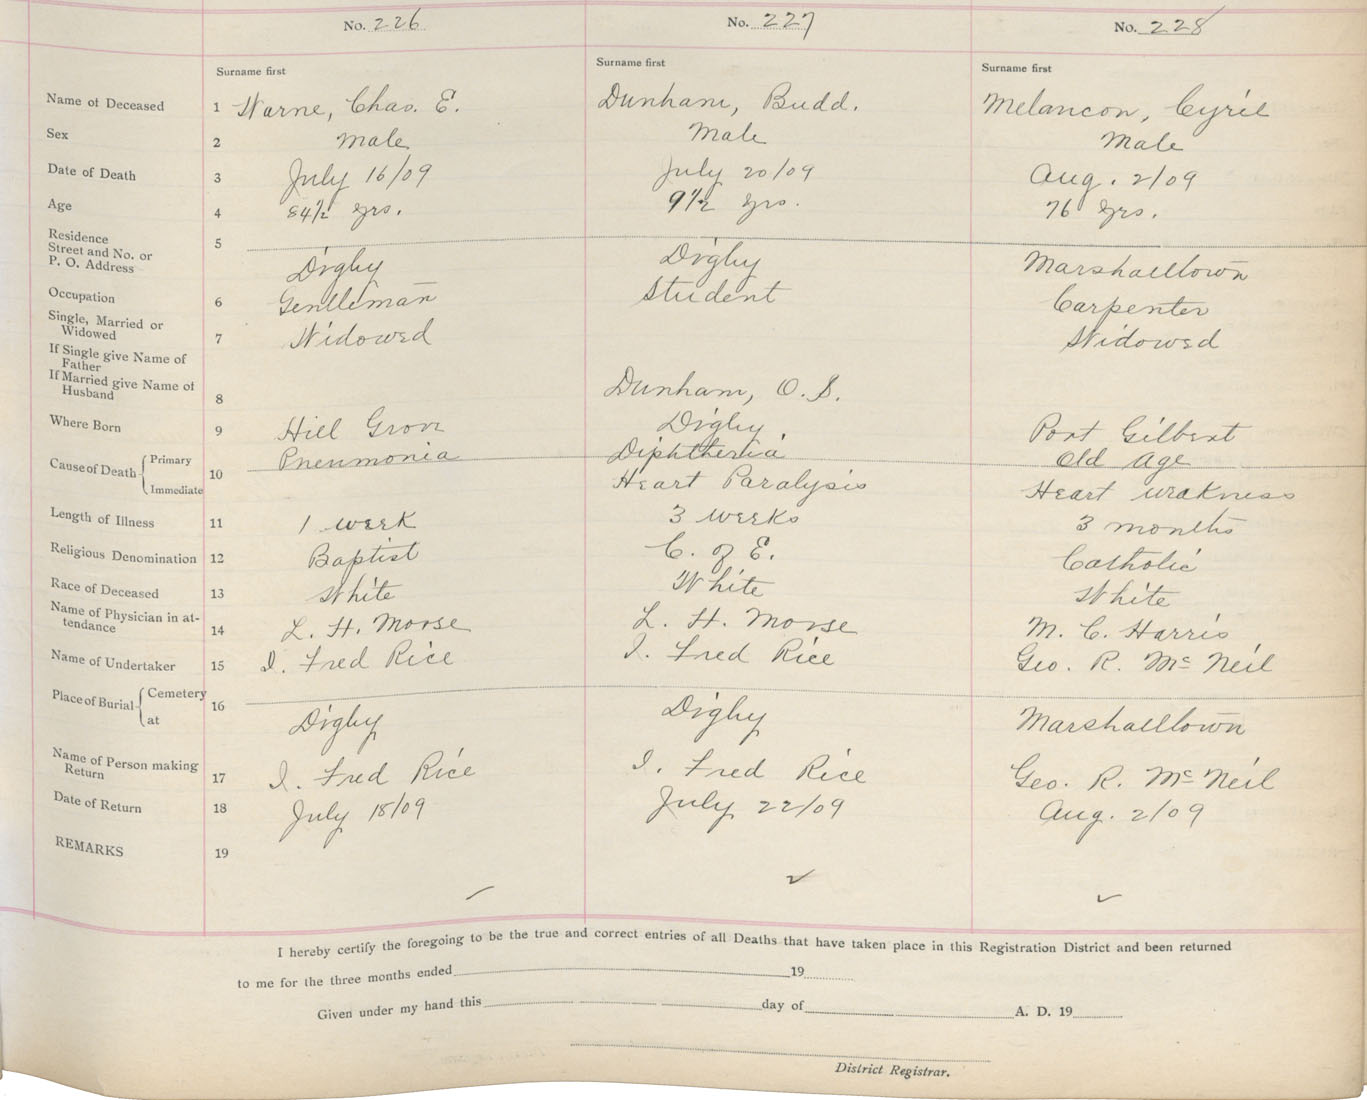 No. 226 No. 227 No. 228
Surname first Surname first Surname first
Name of Deceased 1 Warne, Chas. E. Dunham, Budd. Melancon, Cyril
Sex 2 Male Male Male
Date of Death 3 July 16/09 July 20/09 Aug. 2/09
Age 4 84½ yrs. 9½ yrs. 76 yrs.
Residence
Street and No. or 5
P. O. Address Digby Digby Marshalltown
Occupation 6 Gentleman Student Carpenter
Single, Married or
Widowed 7 Widowed Widowed
If Single give Name of
Father
If Married give Name of
Husband 8 Dunham, O. S.
Where Born 9 Hill Grove Digby Port Gilbert
Cause of Death Primary 10 Pneumonia Diphtheria Old Age
Immediate Heart Paralysis Heart weakness
Length of Illness 11 1 week 3 weeks 3 months
Religious Denomination 12 Baptist C. of E. Catholic
Race of Deceased 13 White White White
Name of Physician in at-
tendance 14 L. H. Morse L. H. Morse M. C. Harris
Name of Undertaker 15 I. Fred Rice I. Fred Rice Geo. R. McNeil
Place of Burial Cemetery 16
at Digby Digby Marshalltown
Name of Person making
Return 17 I. Fred Rice I. Fred Rice Geo. R. McNeil
Date of Return 18 July 18/09 July 22/09 Aug. 2/09
REMARKS 19
I hereby certify the foregoing to be the true and correct entries of all Deaths that have taken place in this Registration District and been returned
to me for the three months ended 19
Given under my hand this day of A. D. 19
District Registrar.